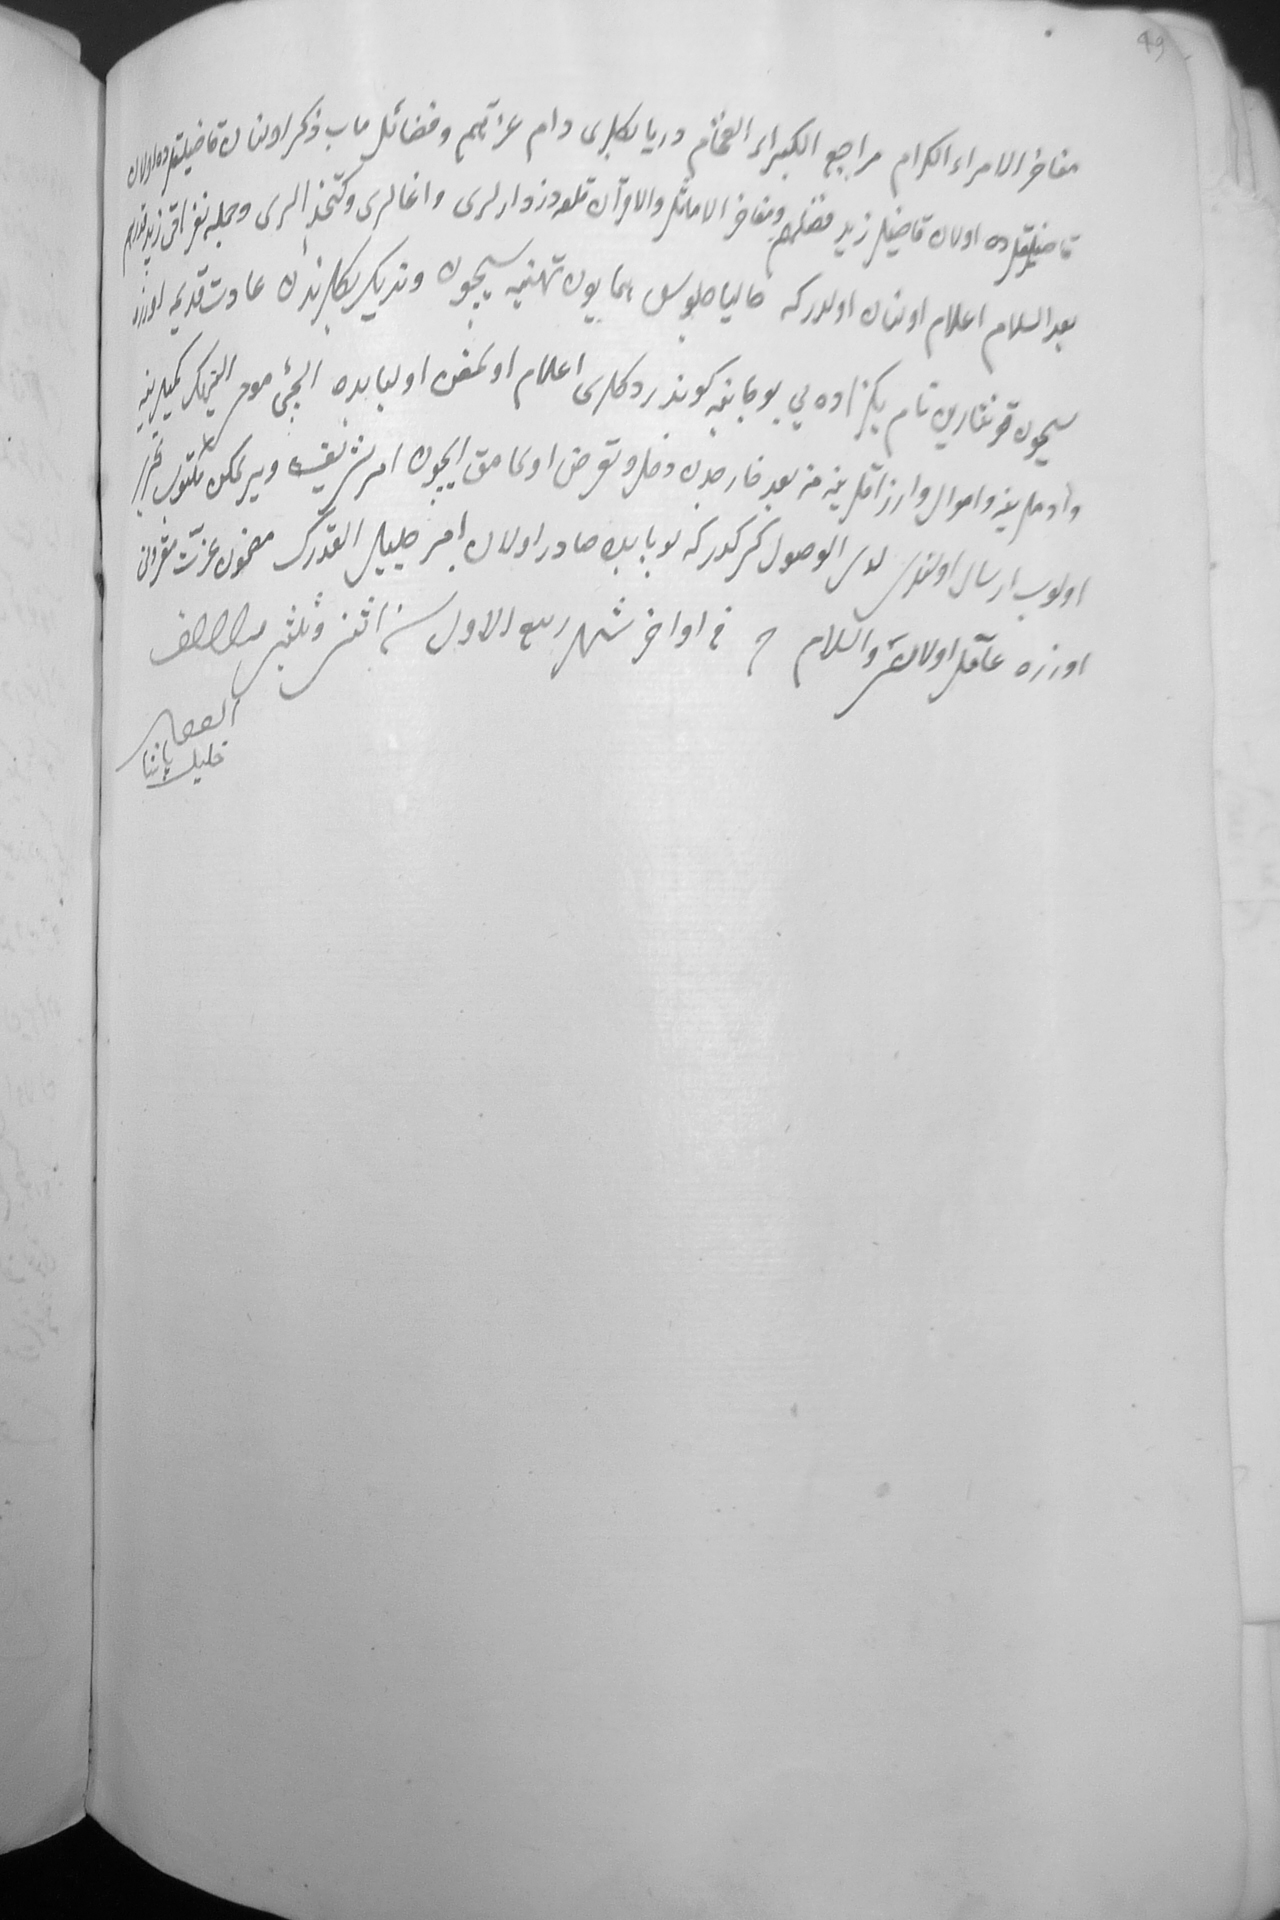 49
مفاخر الامراء الكرام مراجع الكبراء الفخام دريا بكلرى دام عزهم و فضائل مآب ذكر اولنان قاضيلقلرده اولان
قاضيلقلرده اولان قاضيلر زيد فضلهم ومفاخر الاماثل والاقران قلعه دزدارلرى واغالرى وكتخدالرى وجمله نفراتى زيد قدرهم
بعد السلام اعلام اولنان اولدركه حاليا جلوس همايون تهنيه سيچون وندیک بكلرندن عادت قديمه اوزره
سيچون قونتارينى نام بكزاده يى بو جانبه كوندردكلرى اعلام اولنمغين اول بابده ايلچئ موجى اليهك كميلرينه
وآدملرينه واموال وارزاقلرينه من بعد خارجدن دخل وتعرض اولنمامق ايچون امر شريف ويرلمكين مكتوب تحرير
اولوب ارسال اولندى لدى الوصول كركدركه بو بابده صادر اولان امر جليل القدرك مضمون عزت مقرونى
اوزره عامل اولاسز والسلام فى اواخر شهر ربيع الاول سنه اثنى وثلثين والف
الفقير
خليل پاشا